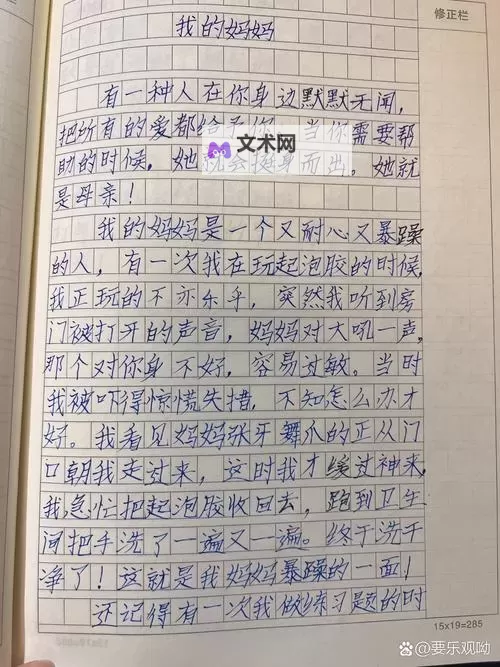 修正栏
我的妈妈
有一种人在你身边默默无闻,
把所有的爱都给予你。当你需要帮
文术网
助的时候,她就会挺身而出。她就
是母亲!
我的妈妈是一个又耐心又暴躁
的人,有一次我在玩起泡胶的时候,
我正玩的不亦乐乎,突然我听到房
门被打开的声音,妈妈对大吼一声,
那个对你身不好,容易过敏。当时
我被吓得惊慌失措,不知怎么办才
好。我看见妈妈张牙舞爪的正从门
口朝我走过来,这时我才缓过神来,
我急忙把起泡胶收回去,跑到卫生
间把手洗了一遍又一遍。终于洗干
净了!这就是我妈妈暴躁的一面!
还记得有一次我做练习题的时
15x19=285
@要乐观呦